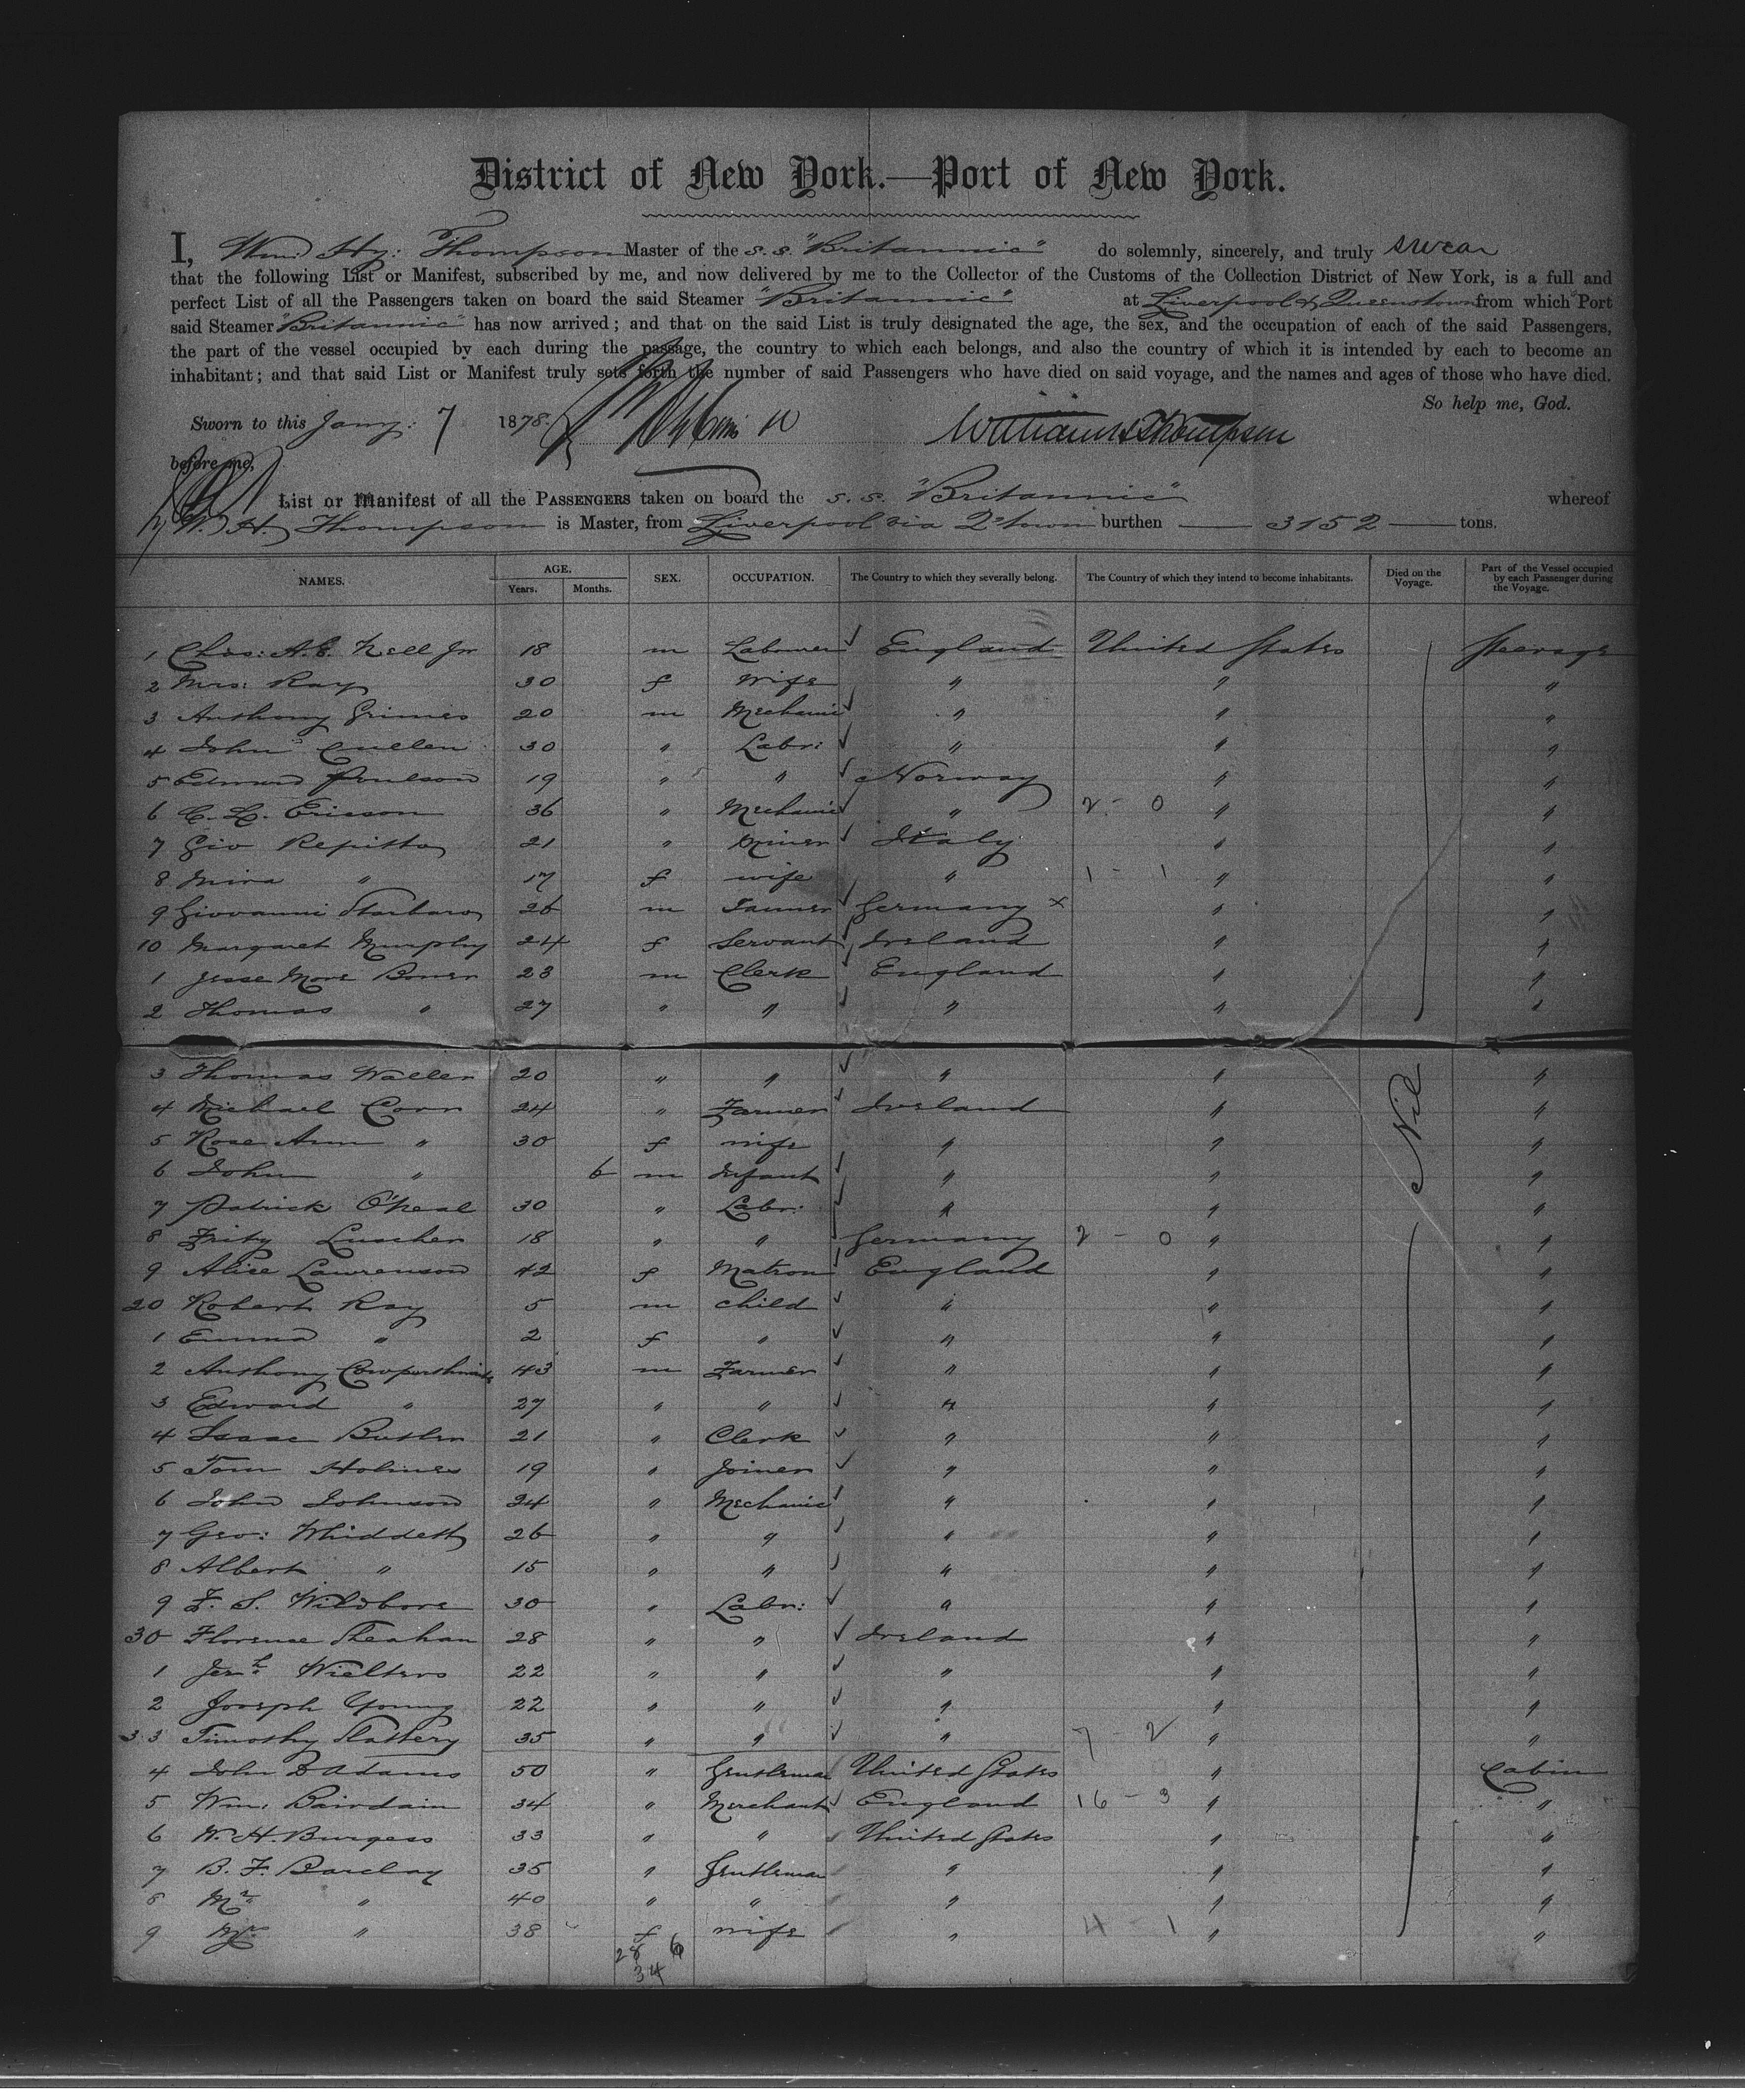 District of New York.—Port of New York.
I, Wm. Hy: Thompson Master of the s.s. "Britannic" do solemnly, sincerely, and truly swear
that the following List or Manifest, subscribed by me, and now delivered by me to the Collector of the Customs of the Collection District of New York, is a full and
perfect List of all the Passengers taken on board the said Steamer "Britannic" at Liverpool & Queenstown from which Port
said Steamer "Britannic" has now arrived; and that on the said List is truly designated the age, the sex, and the occupation of each of the said Passengers,
the part of the vessel occupied by each during the passage, the country to which each belongs, and also the country of which it is intended by each to become an
inhabitant; and that said List or Manifest truly sets forth the number of said Passengers who have died on said voyage, and the names and ages of those who have died.
So help me, God.
Sworn to this Jany: 7 1878. William H Thompson
before me,
List or Manifest of all the PASSENGERS taken on board the s.s. "Britannic" whereof
W. H. Thompson is Master, from Liverpool via Q'town burthen 3152 tons.
NAMES. AGE. Years. Months. SEX. OCCUPATION. The Country to which they severally belong. The Country of which they intend to become inhabitants. Died on the Voyage. Part of the Vessel occupied by each Passenger during the Voyage.
1 Chas: A. E. Nell Jr 18 m Labourer England United States Steerage
2 Mrs: Ray 30 f Wife " " "
3 Anthony Grimes 20 m Mechanic " " "
4 John Cullen 30 " Labr: " " "
5 Edward Poulson 19 " " Norway " "
6 C. L. Ericson 36 " Mechanic " 2 - 0 " "
7 Gio Repitto 21 " Miner Italy " "
8 Mira " 17 f wife " 1 - 1 " "
9 Giovanni 26 m Germany x " "
10 Margaret Murphy 24 f Servant Ireland " "
1 Jesse More Bower 23 m Clerk England " "
2 Thomas " 27 " " " " "
3 Thomas Waller 20 " " " " "
4 Michael Corr 24 " Farmer Ireland " Nil "
5 Rose Ann " 30 f wife " " "
6 John " 6 m Infant " " "
7 Patrick O'Neal 30 " Labr: " " "
8 Fritz Luscher 18 " " Germany 2 - 0 " "
9 Alice Lawrenson 42 f Matron England " "
20 Robert Ray 5 m child " " "
1 Emma " 2 f " " " "
2 Anthony Cowperthwaite 43 m Farmer " " "
3 Edward " 27 " " " " "
4 Isaac Butler 21 " Clerk " " "
5 Tom Holmes 19 " Joiner " " "
6 John Johnson 24 " Mechanic " " "
7 Geo: Whiddett 26 " " " " "
8 Albert " 15 " " " " "
9 F. S. Wildbore 30 " Labr: " " "
30 Florence Sheahan 28 " " Ireland " "
1 Jerh. Wielters 22 " " " " "
2 Joseph Young 22 " " " " "
33 Timothy Slattery 35 " " " 7 2 " "
4 John D Adams 50 " Gentleman United States " Cabin
5 Wm. Bairdain 34 " Merchant England 16 - 3 " "
6 W. H. Burgess 33 " " United States " "
7 B. F. Barclay 35 " Gentleman " " "
8 Mr " 40 " " " " "
9 Mrs " 38 f wife " 4 - 1 " "
28 6
34